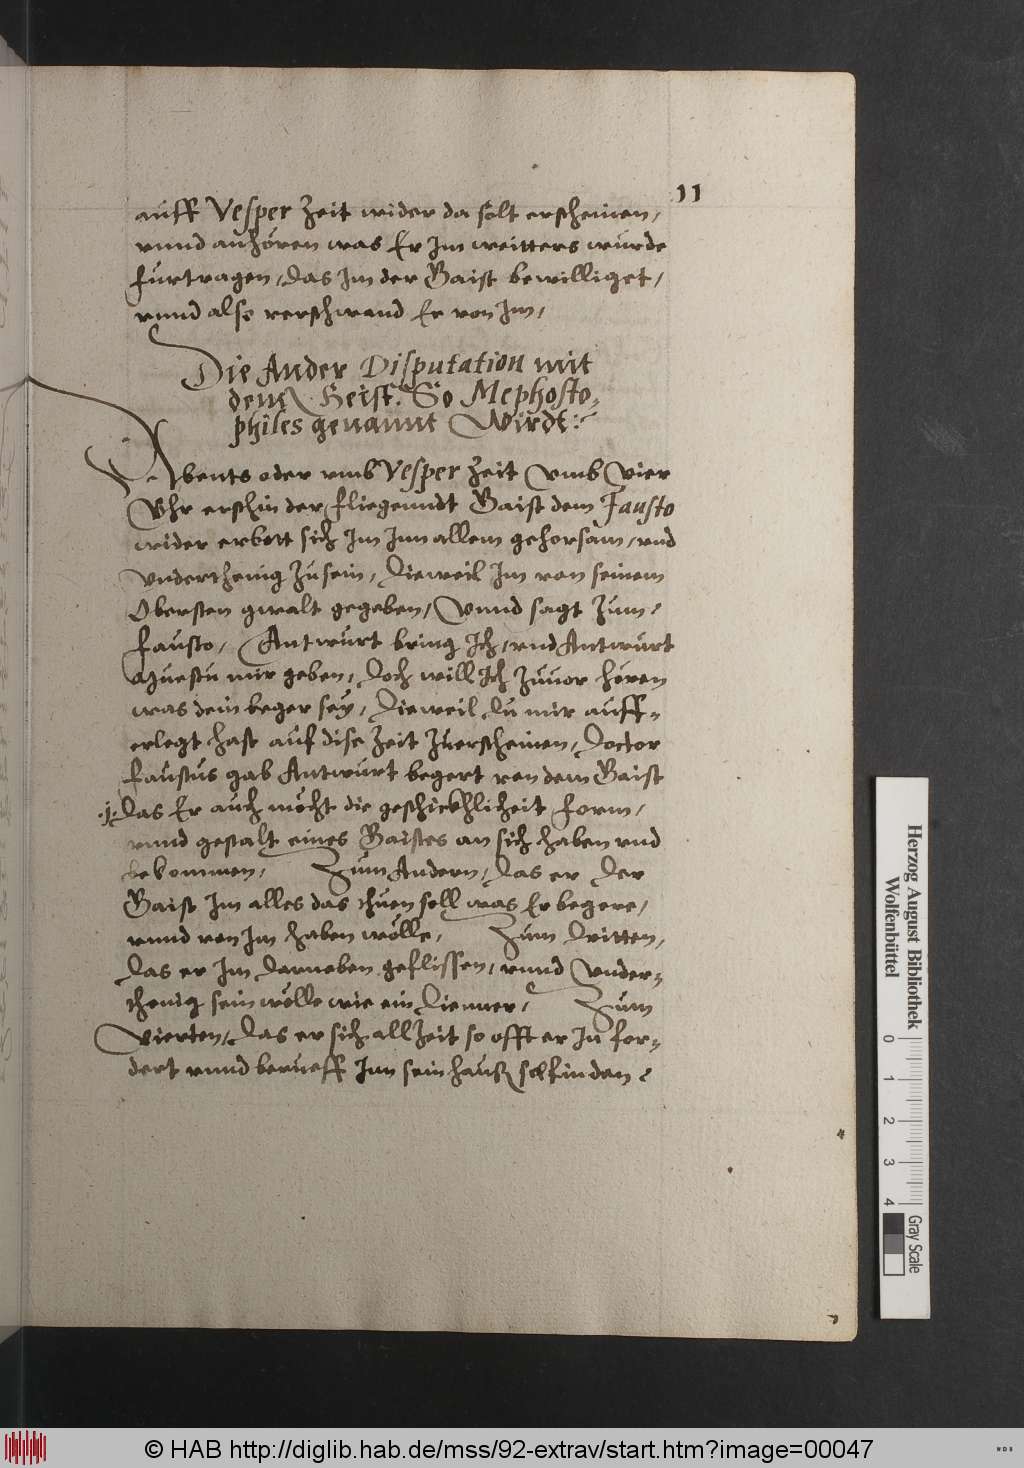 11
auff Vesper Zeit wider da solt erscheinen,
vnnd anhören was Er Im weitters wurde
furtragen, das Im der Gaist bewilliget,
vnnd also verschwand Er von Im,
Die Ander Disputation mit
dem Geist. So Mephosto,
philes genannt Wirdt:
Abents oder vmb Vesper Zeit Vmb Vier
Vhr erschin der fliegenndt Gaist dem Fausto
wider erbott sich Im Inn allem gehorsam, vnd
Vnderthenig zu sein, Dieweil Im von seinem
Obersten gwalt gegeben, Vnnd sagt Zum,
Fausto, Antwurt bring Ich, vnd Antwurt
muestu mir geben, Doch will Ich zuuor hören
was dein beger sey, Dieweil du mir auff-
erlegt hast auf dise Zeit zuerscheinen, Doctor
Faustus gab Antwurt begert von dem Gaist
.j. Das Er auch möcht die geschickhlicheit form,
vnnd gestalt eines Gaistes an sich haben vnd
bekommen, Zum Andern, Das er Der
Gaist Im alles das thuen soll was Er begere,
vnnd von Im haben wölle, Zum Dritten,
Das er Im Darneben geflissen, vnnd Vnder-
thenig sein wölle wie ein Dienner, Zum
Vierten, Das er sich all Zeit so offt er In for-
dert vnnd berueff Inn sein hauß finden
Herzog August Bibliothek
Wolfenbüttel
0 1 2 3 4
Gray Scale
© HAB http://diglib.hab.de/mss/92-extrav/start.htm?image=00047